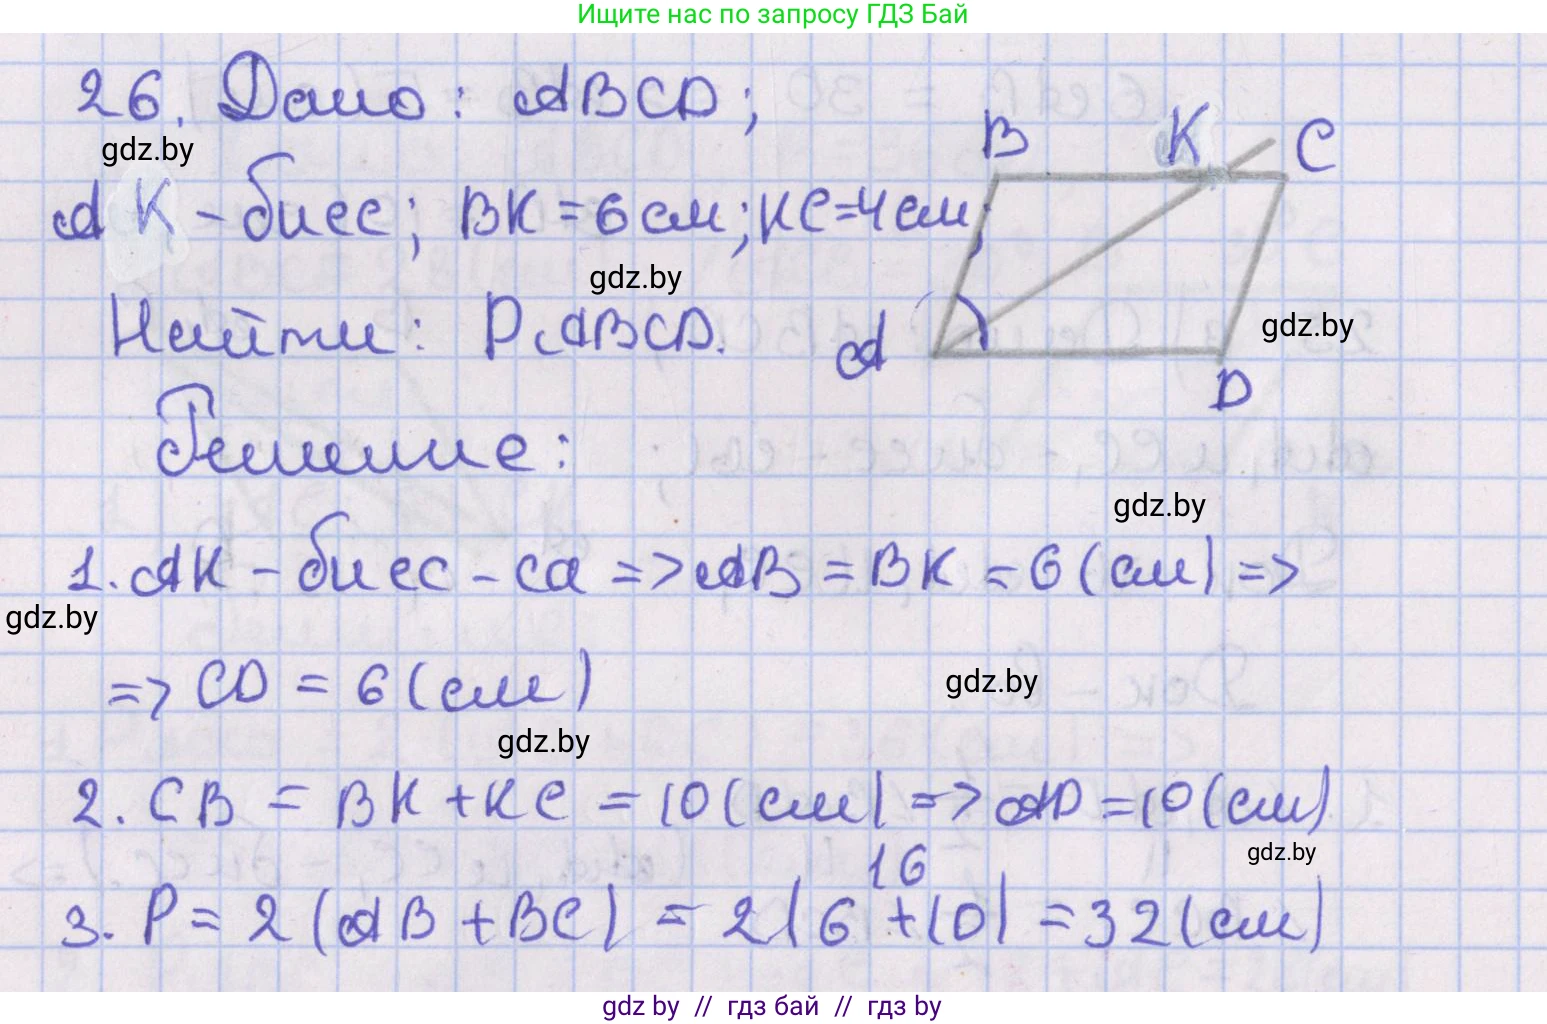 Ищите нас по запросу ГДЗ Бай
26. Дано: ABCD;
gdz.by
B K C
AK - бисс; BK = 6 см; KC = 4 см;
gdz.by
Найти: P ABCD.
A
gdz.by
D
Решение:
gdz.by
1. AK - бисс - са => AB = BK = 6 (см) =>
gdz.by
=> CD = 6 (см)
gdz.by
gdz.by
2. CB = BK + KC = 10 (см) => AD = 10 (см)
gdz.by
16
3. P = 2 (AB + BC) = 2 (6 + 10) = 32 (см)
gdz by // гдз бай // гдз by